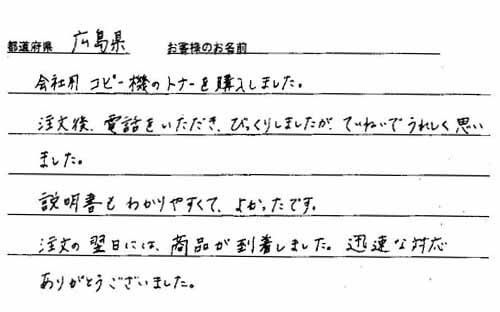 都道府県 広島県 お客様のお名前
会社用コピー機のトナーを購入しました。
注文後、電話をいただき、びっくりしましたが、ていねいでうれしく思い
ました。
説明書もわかりやすくて、よかったです。
注文の翌日には、商品が到着しました。迅速な対応
ありがとうございました。